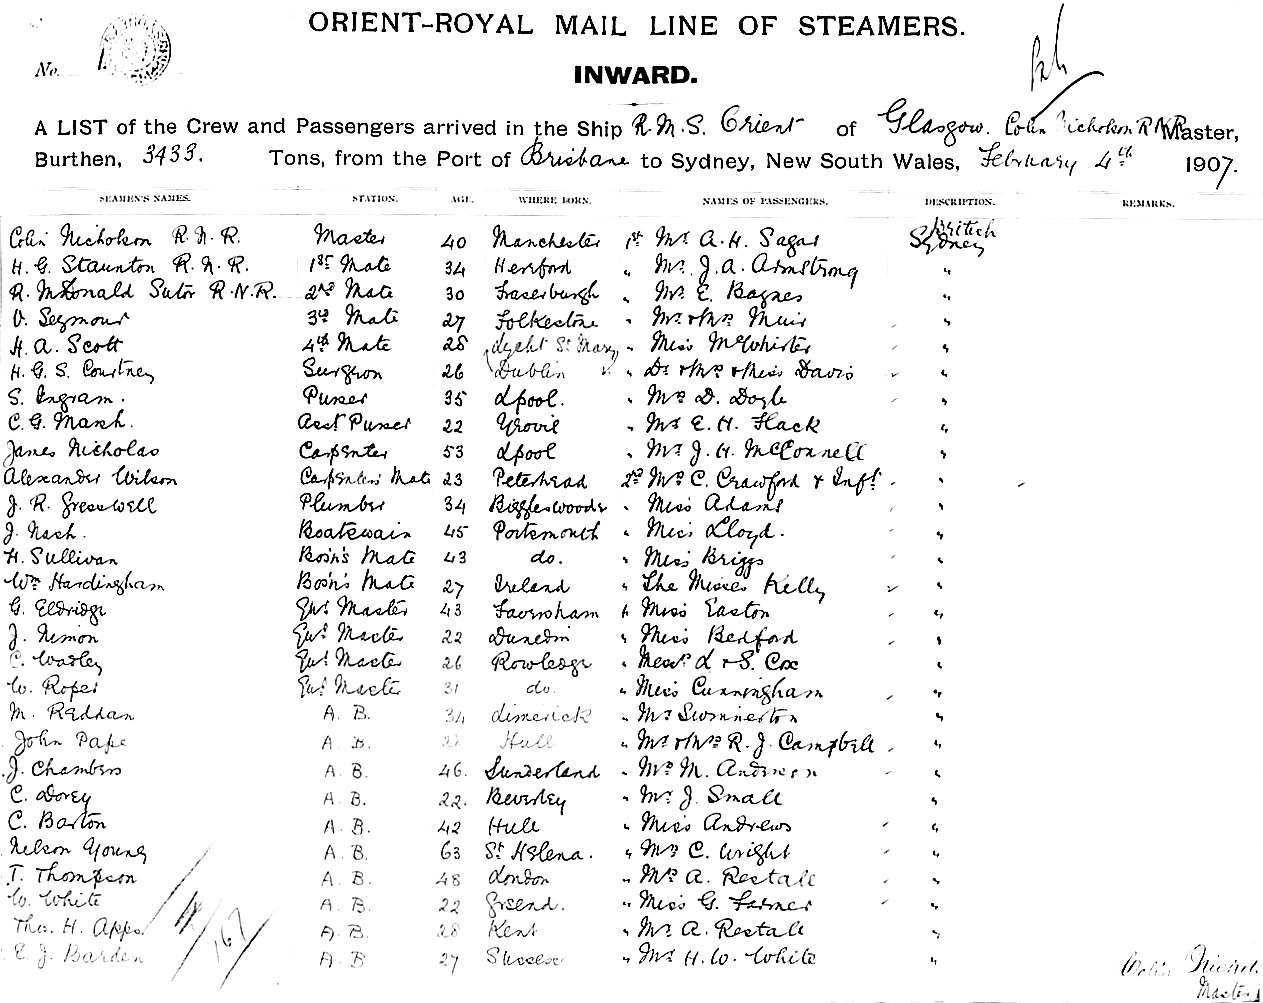 ORIENT-ROYAL MAIL LINE OF STEAMERS.
No.
INWARD.
A LIST of the Crew and Passengers arrived in the Ship R.M.S. Orient of Glasgow. Colin Nicholson R.N.R. Master,
Burthen, 3433. Tons, from the Port of Brisbane to Sydney, New South Wales, February 4th 1907.
SEAMEN'S NAMES. STATION. AGE. WHERE BORN. NAMES OF PASSENGERS. DESCRIPTION. REMARKS.
British
Colin Nicholson R.N.R. Master 40 Manchester 1st Mr A.H. Sagar Sydney
H.G. Staunton R.N.R. 1st Mate 34 Hereford " Mr. J.A. Armstrong "
R. McDonald Sutor R.N.R. 2nd Mate 30 Fraserburgh " Mr E. Baynes "
V. Seymour 3rd Mate 27 Folkestone " Mr & Mrs Muir "
H.A. Scott 4th Mate 28 St Mary " Miss McWhister "
H.G.S. Courtney Surgeon 26 Dublin " Dr & Mrs & Miss Davis "
S. Ingram. Purser 35 Lpool. " Mrs D. Doyle "
C.G. Marsh. Asst Purser 22 Yeovil " Mr E.H. Flack "
James Nicholas Carpenter 53 Lpool " Mr J.H. McConnell "
Alexander Wilson Carpenters Mate 23 Peterhead 2nd Mrs C. Crawford & Inft. "
J.R. Gresswell Plumber 34 Biggleswoode " Miss Adams "
J. Nash. Boatswain 45 Portsmouth " Miss Lloyd. "
H. Sullivan Bosn's Mate 43 do. " Miss Briggs "
Wm Hardingham Bosn's Mate 27 Ireland " The Misses Kelly "
G. Eldridge Qur Master 43 Faversham " Miss Easton "
J. Nimon Qur Master 22 Dunedin " Miss Bedford "
C. Wadley Qur Master 26 Rowledge " Messrs L & S. Cox "
W. Roper Qur Master 31 do. " Miss Cunningham "
M. Reddan A.B. 34 Limerick " Mr Swinnerton "
John Pape A.B. 28 Hull " Mr & Mrs R.J. Campbell "
J. Chambers A.B. 46. Sunderland " Mrs M. Anderson "
C. Dovey A.B. 22. Beverley " Mr J. Small "
C. Barton A.B. 42 Hull " Miss Andrews "
Nelson Young A.B. 63 St Helena. " Mrs C. Wright "
T. Thompson A.B. 48 London " Mrs A. Restall "
W. White A.B. 22 Grsend. " Miss G. Farmer "
Thos. H. Apps. A.B. 28 Kent " Mr A. Restall "
E.J. Barden A.B 27 Sussex " Mr H.W. White "
Colin
Master